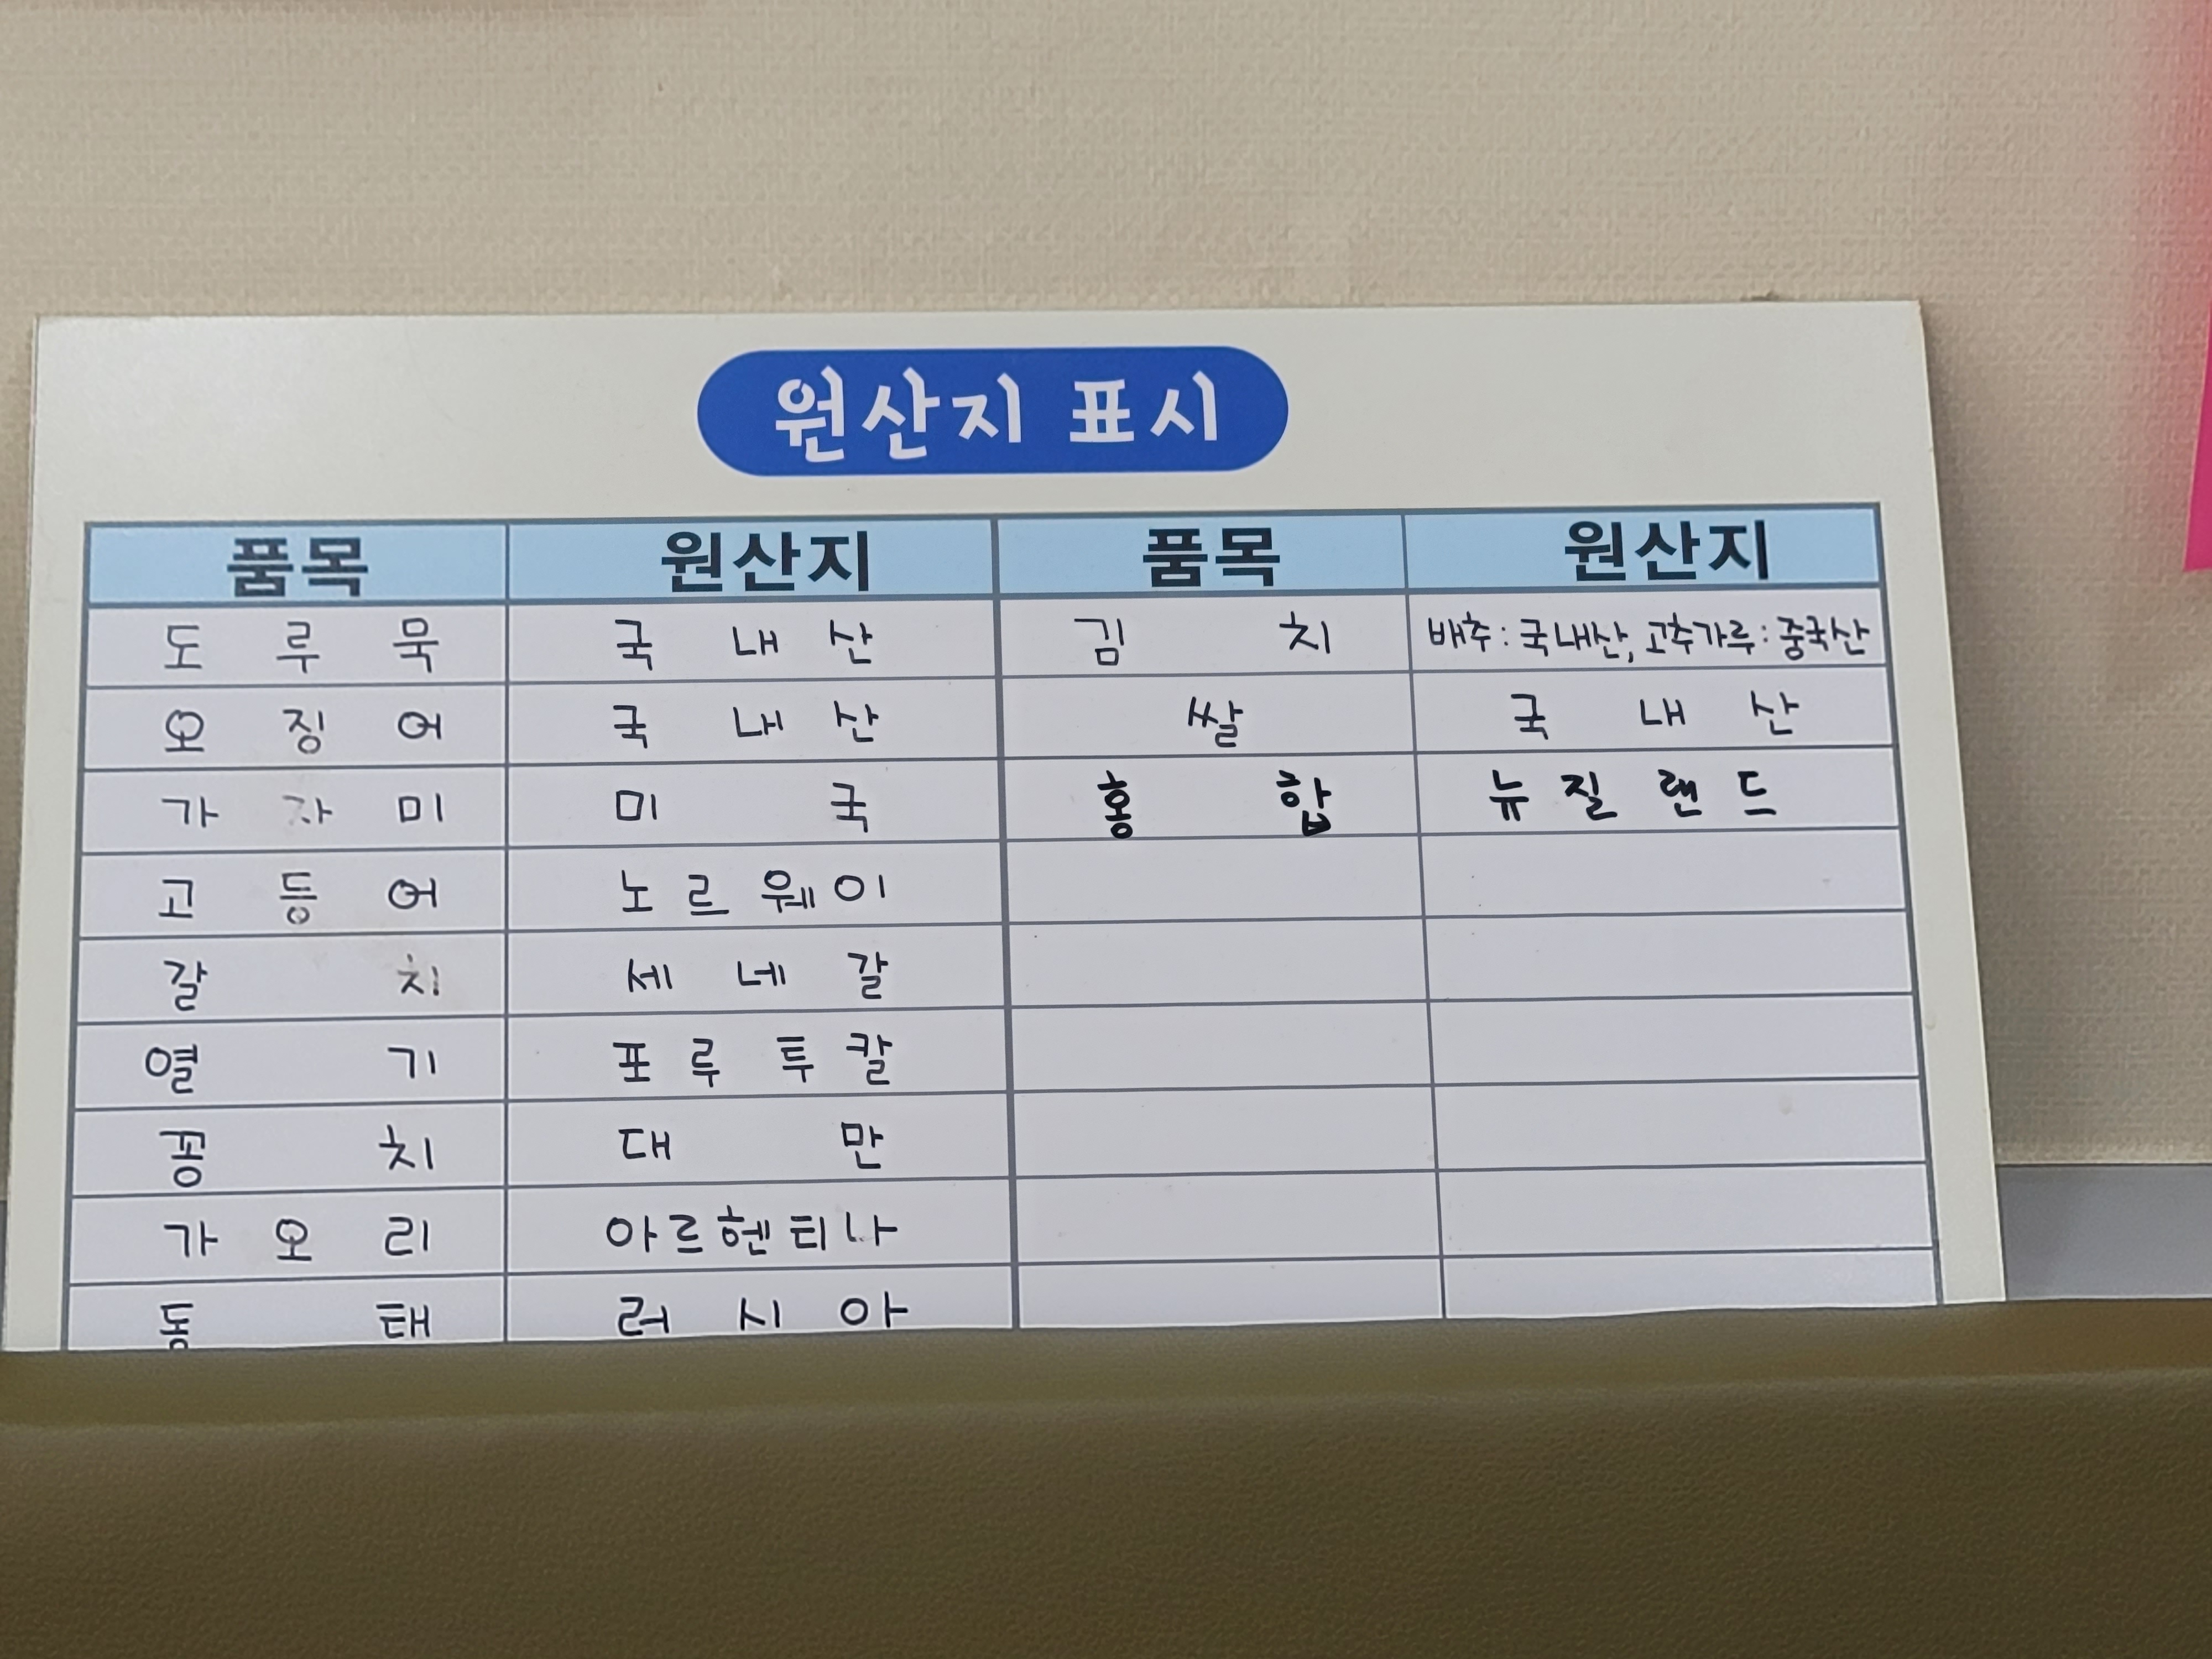 원산지 표시
품목 원산지 품목 원산지
도루묵 국내산 김치 배추:국내산, 고추가루:중국산
오징어 국내산 쌀 국내산
가자미 미국 홍합 뉴질랜드
고등어 노르웨이
갈치 세네갈
열기 포루투칼
꽁치 대만
가오리 아르헨티나
동태 러시아